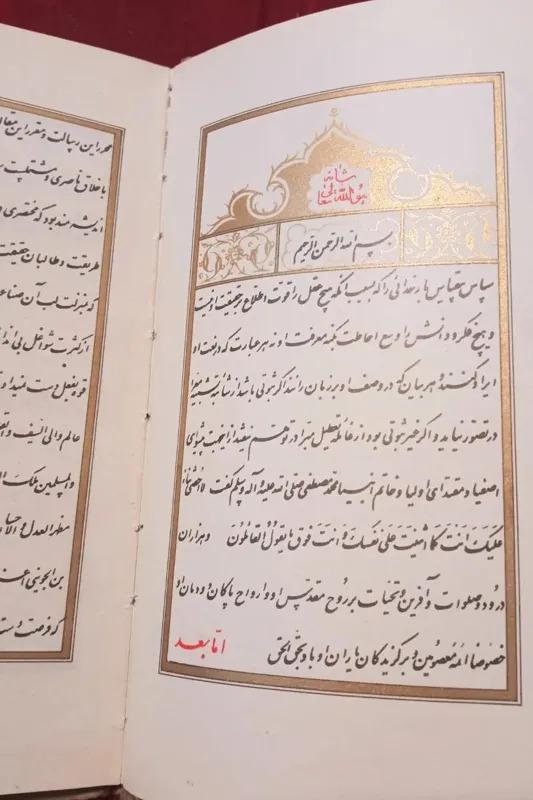 شانه
هو الله تعالی
بسم الله الرحمن الرحیم
سپاس بیقیاس بارخدائی را که بسبب آنکه هیچ عقل را قوت اطلاع بر حقیقت او نیست
و هیچ فکر و دانش را وسع احاطت بکنه معرفت او نه هر عبارت که در نعت او
ایراد کنند و هر بیان که در وصف او بر زبان رانند اگر ثبوتی باشد از شائبه تشبیه معرا
در تصور نیاید و اگر غیر ثبوتی بود از غائله تعطیل مبرا در توهم نیفتد از اینجهت پیشوای
اصفیا و مقتدای اولیا و خاتم انبیا محمد مصطفی صلی الله علیه و آله و سلم گفت لا اُحْصی ثَناءً
عَلَیْکَ اَنْتَ کَما اَثْنَیْتَ عَلی نَفْسِکَ وَ اَنْتَ فَوْقَ ما یَقُولُ القائِلُونَ و هزاران
درود و صلوات و آفرین و تحیات بر روح مقدس او و ارواح پاکان دودمان او
خصوصاً ائمه معصومین و برگزیدگان یاران او باد بحق الحق اما بعد
محرر این رسالت و مقرر این
باخلاق ناصری و مشتملست
اندیشه مند بود که مختصری
طریقت و طالبان حقیقت
که منزلت لب آن
از کثرت شواغل بی
قوه بفعل دست
عالم والی السیف
و المسلمین ملک
مظهر العدل و
بن الجوینی
که فرصت